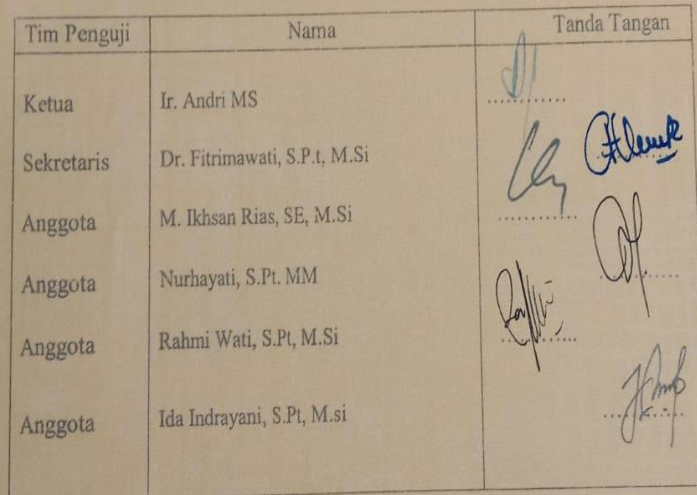 Tim Penguji Nama Tanda Tangan
Ketua Ir. Andri MS
Sekretaris Dr. Fitrimawati, S.P.t, M.Si
Anggota M. Ikhsan Rias, SE, M.Si
Anggota Nurhayati, S.Pt. MM
Anggota Rahmi Wati, S.Pt, M.Si
Anggota Ida Indrayani, S.Pt, M.si